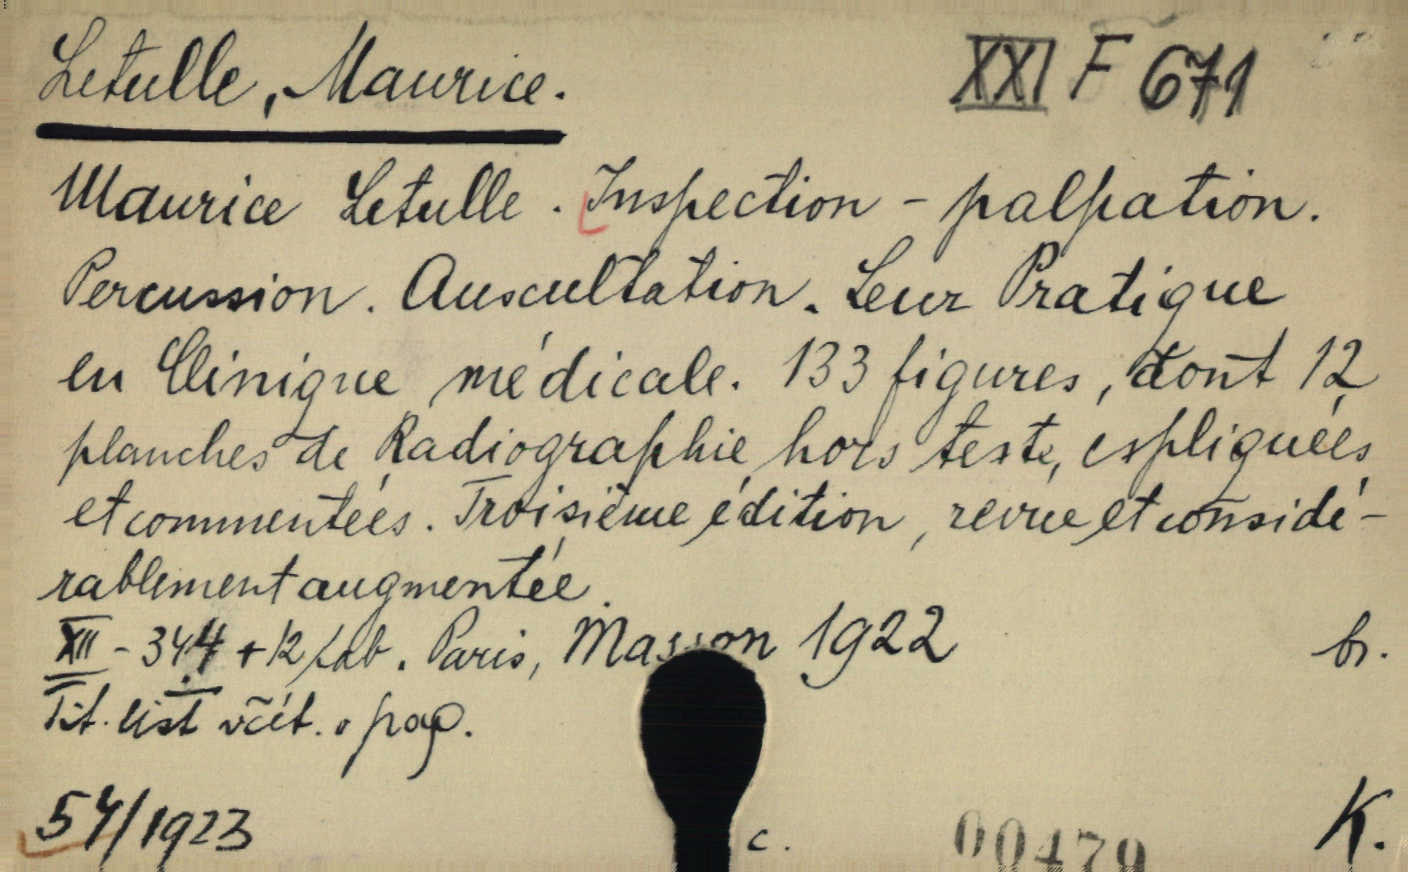 Letulle, Maurice.
XXI F 671
Maurice Letulle. Inspection - palpation.
Percussion. Auscultation. Leur Pratique
en Clinique médicale. 133 figures, dont 12
planches de Radiographie hors texte, expliquées
et commentées. Troisième édition, revue et considé-
rablement augmentée.
XII - 344 + 12 tab. Paris, Masson 1922
br.
Tit. list včít. v pag.
54/1923
c.
00479
K.